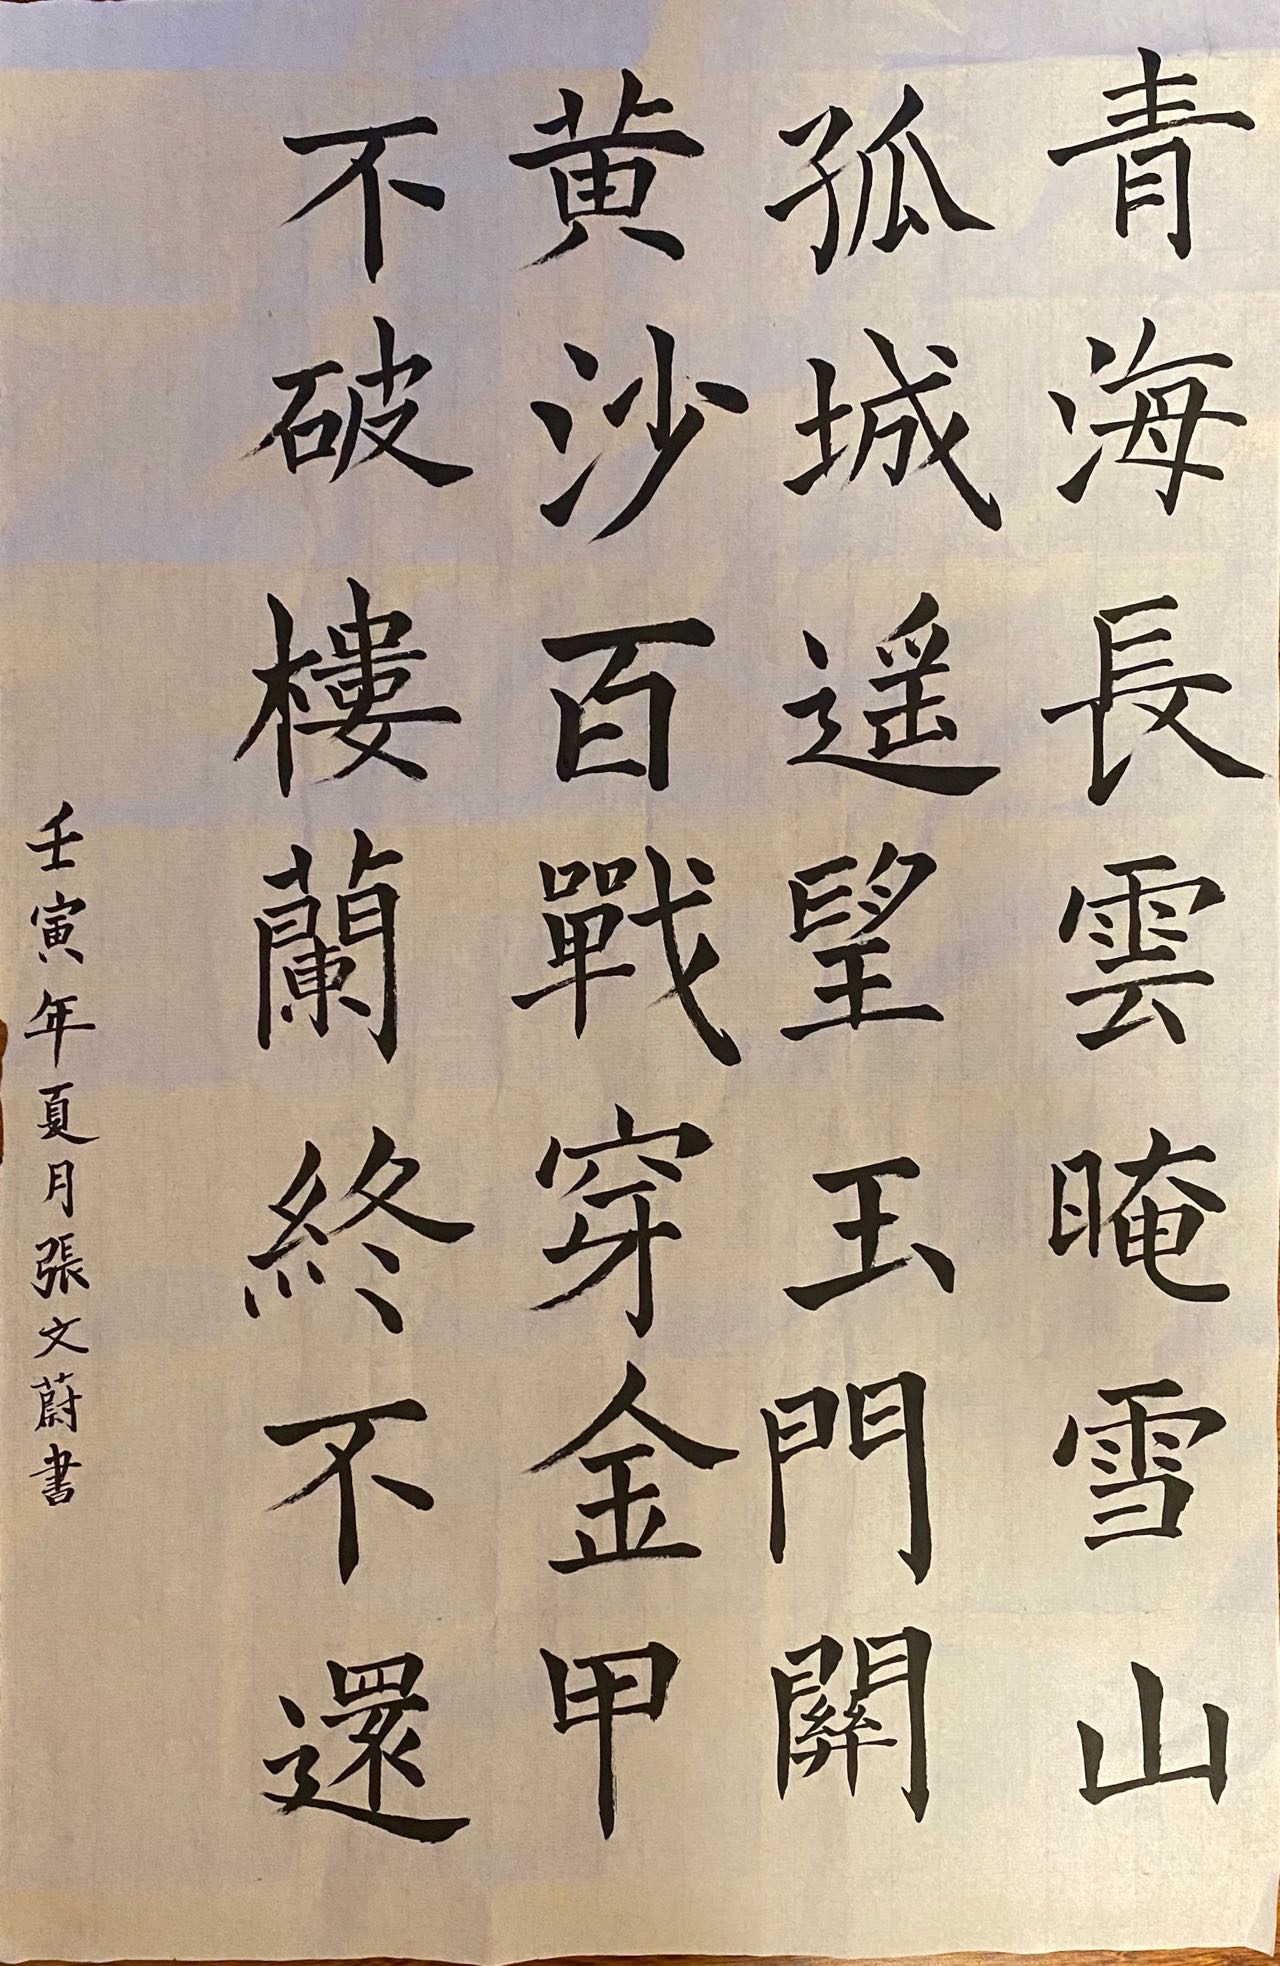 青海長雲晻雪山
孤城遥望玉門關
黄沙百戰穿金甲
不破樓蘭終不還
壬寅年夏月張文蔚書